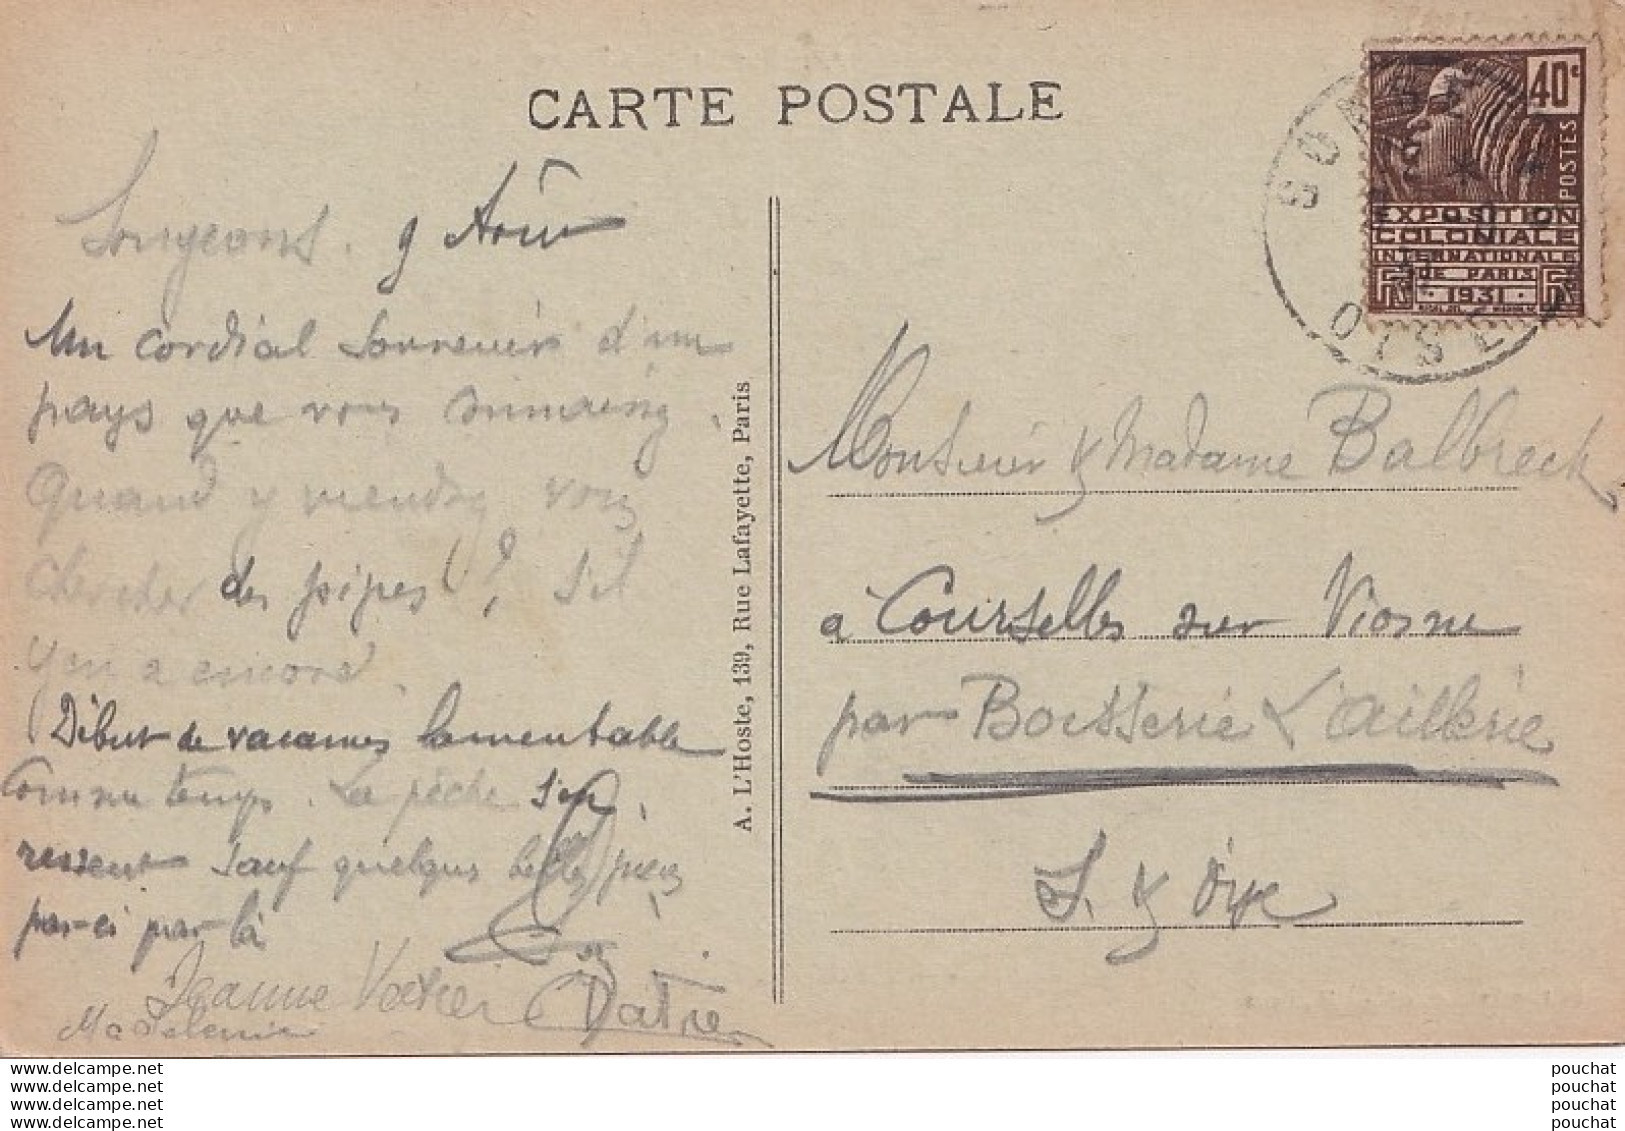 CARTE POSTALE
Songeons. 9 Août
Un cordial souvenir d'un
pays que vous aimiez.
Quand y viendrez vous
chercher des pipes!? s'il
y en a encore.
(Début de vacances lamentable
comme temps. La pêche s'en
ressent sauf quelques belles pièces
par-ci par-là
Jeanne Vatrée
Madeleine
A. L'Hoste, 139, Rue Lafayette, Paris
40c
POSTES
EXPOSITION
COLONIALE
INTERNATIONALE
DE PARIS
1931
OISE
Monsieur & Madame Balbreck
à Courselles sur Viosne
par Boisserie L'aillerie
S. & Oise
www.delcampe.net
www.delcampe.net
www.delcampe.net
www.delcampe.net
pouchat
pouchat
pouchat
pouchat